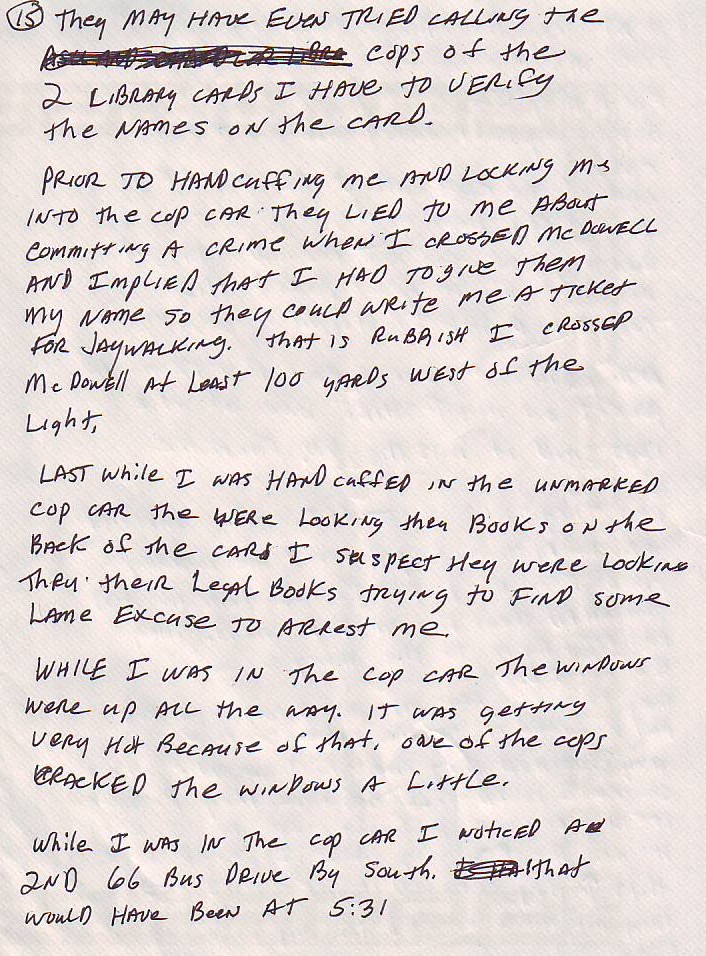 (15) They MAY HAVE EVEN TRIED CALLING the
COPS of the
2 LIBRARY CARDS I HAVE TO VERIFY
the NAMES ON the CARD.
PRIOR TO HANDCUFFING me AND LOCKING Me
INTO the COP CAR They LIED TO me ABOUT
COMMITTING A CRIME WHEN I CROSSED McDOWELL
AND IMPLIED that I HAD TO give Them
MY NAME SO they COULD WRITE me A TICKET
FOR JAYWALKING. THAT IS RUBBISH I CROSSED
McDowell At LEAST 100 YARDS WEST of the
Light,
LAST while I WAS HANDCUFFED IN the UNMARKED
COP CAR the WERE LOOKING thru BOOKS ON the
BACK OF the CAR I SUSPECT they WERE LOOKING
THRU their LEGAL BOOKS TRYING to FIND some
LAME EXCUSE TO ARREST me.
WHILE I WAS IN The COP CAR The WINDOWS
WERE UP ALL the WAY. IT WAS getting
VERY Hot BECAUSE of that. ONE of the cops
CRACKED the WINDOWS A LITTLE.
While I WAS IN The COP CAR I NOTICED A
2ND 66 BUS DRIVE BY South. that
WOULD HAVE BEEN AT 5:31